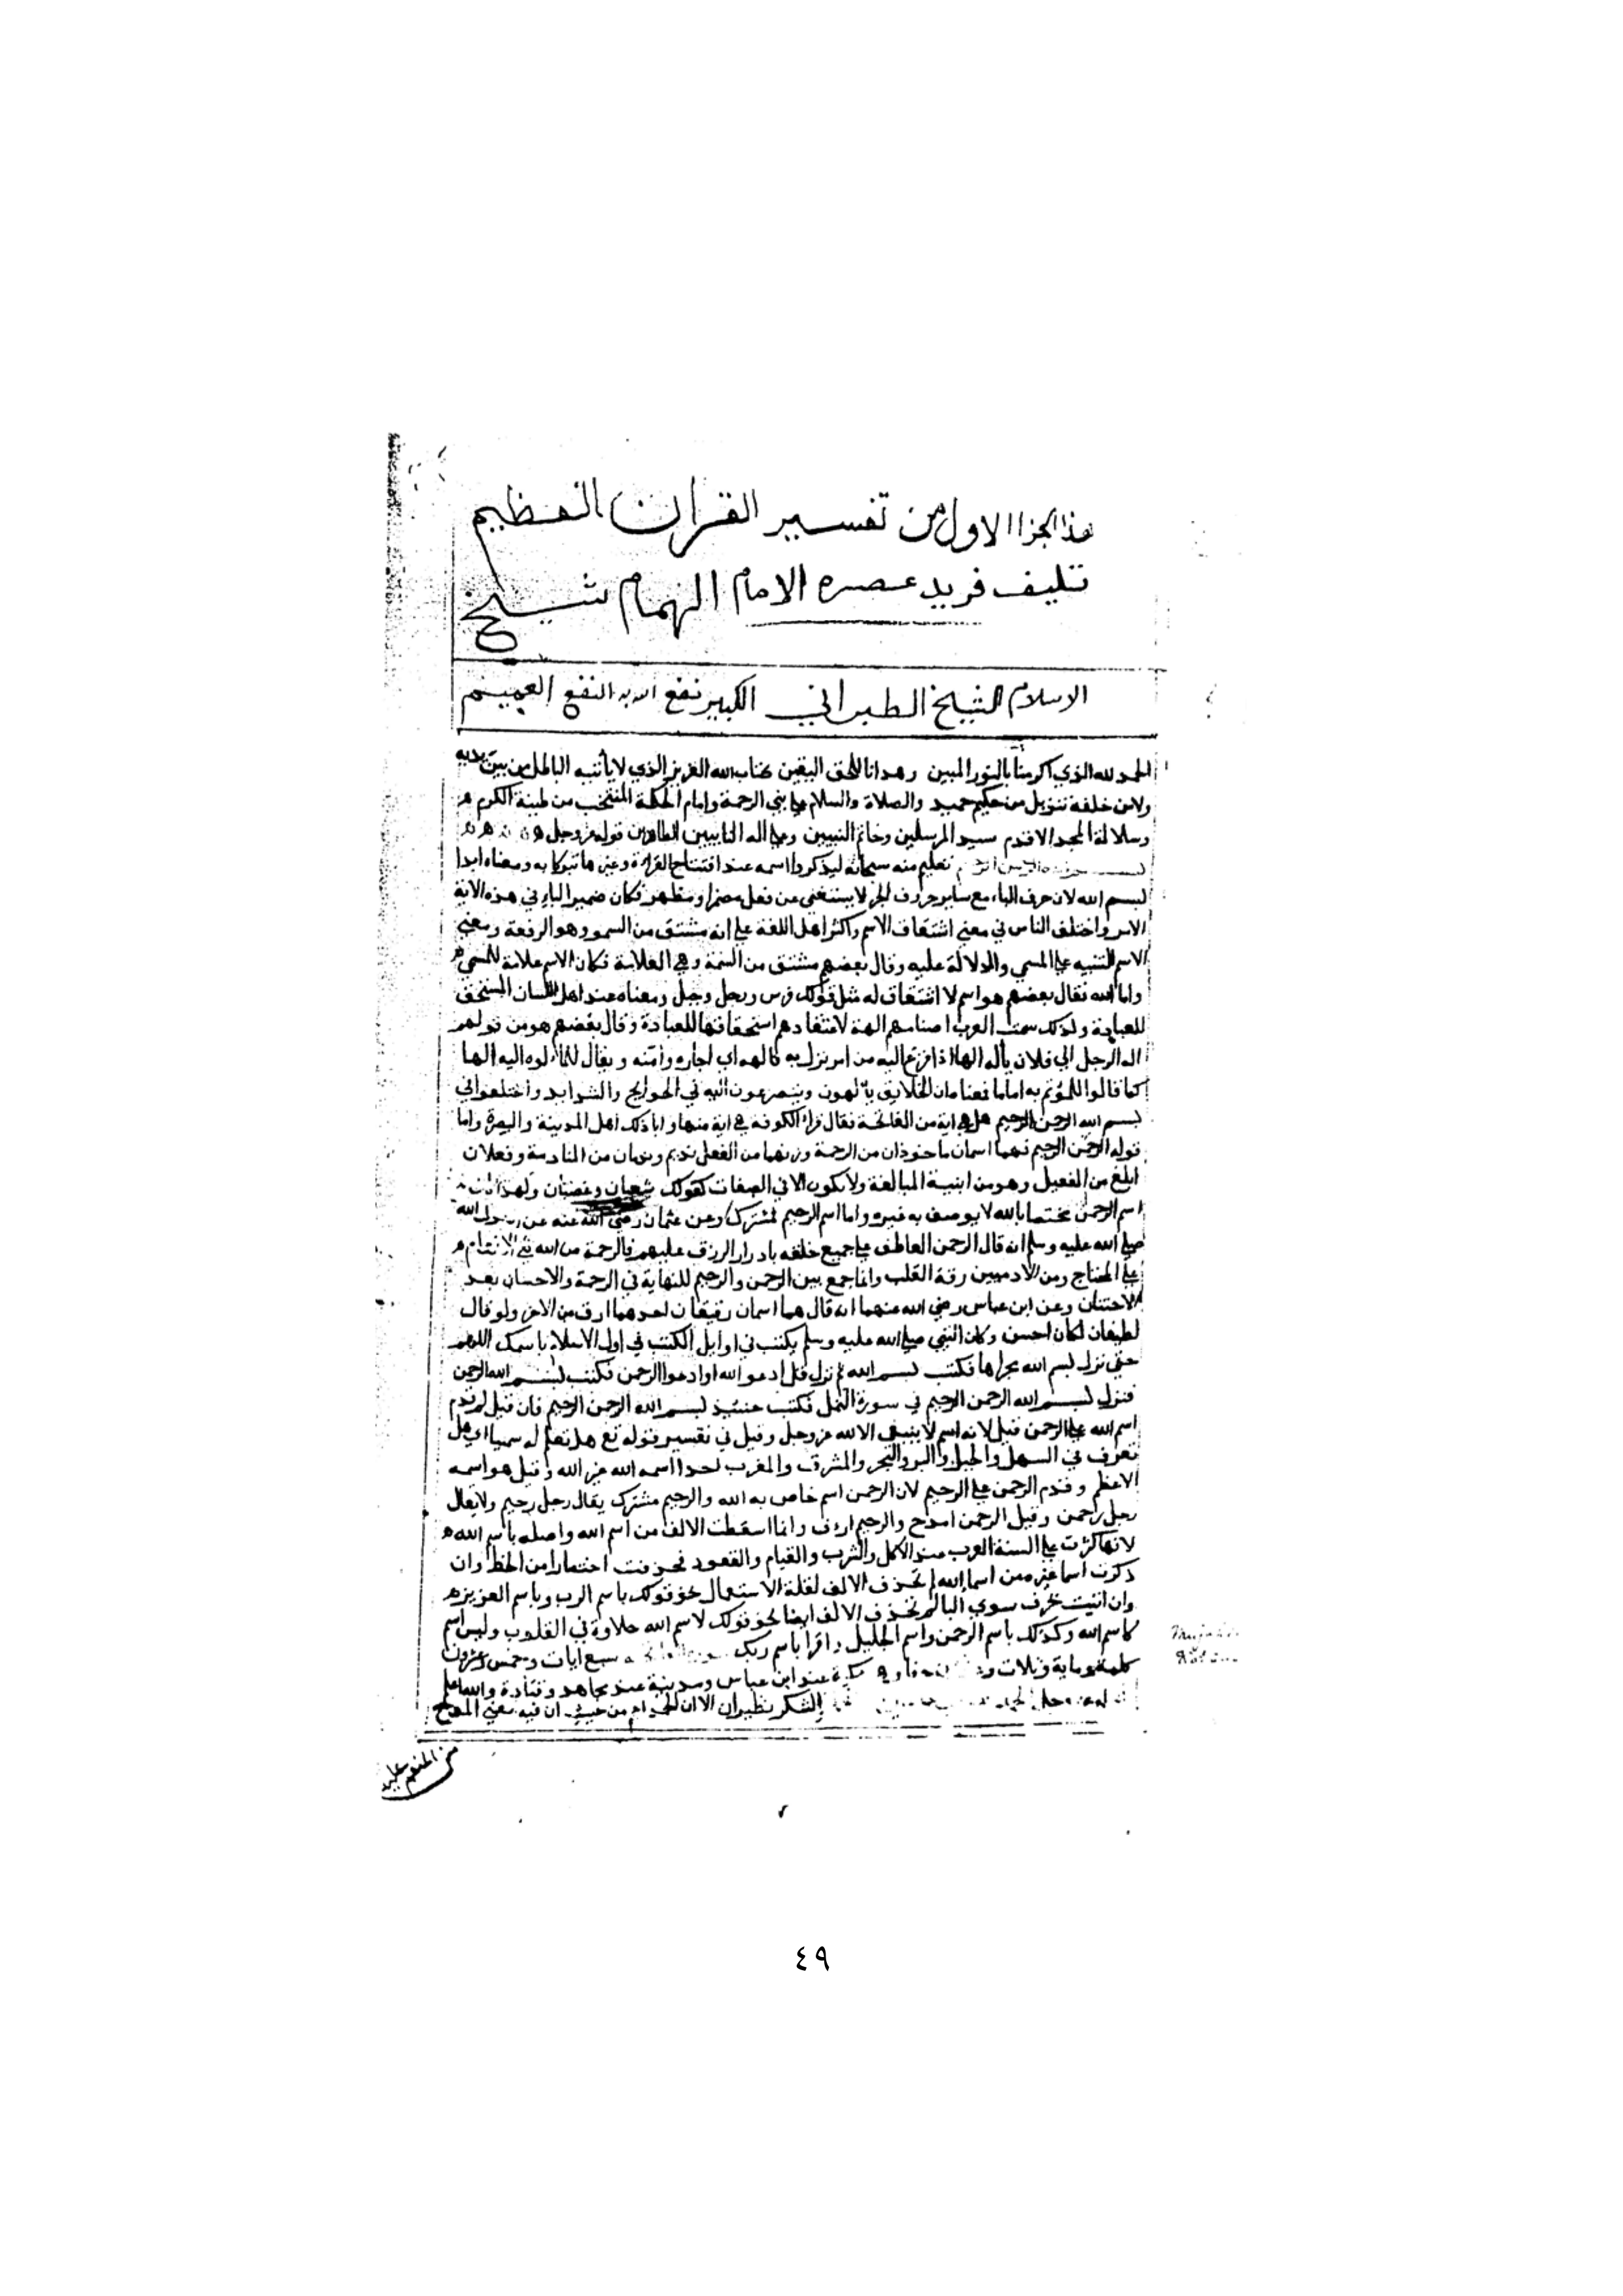 هذا الجزا الاول من تفسير القران العظيم
تليف فريد عصره الامام الهمام شيخ
الاسلام الشيخ الطبراني الكبير نفع الله به النفع العميم
الحمد لله الذي اكرمنا بالنور المبين وهدانا للحق اليقين كتاب الله العزيز الذي لا يأتيه الباطل من بين يديه
ولا من خلفه تنزيل من حكيم حميد والصلاة والسلام على نبي الرحمة وامام الحكمة المنتخب من طينة الكرم
وسلالة المجد الاقدم سيد المرسلين وخاتم النبيين وعلى اله الطاهرين قوله عز وجل
تعليم منه سبحانه ليذكروا اسمه عند افتتاح القراءة وغيرها تبركا به ومعناه ابدا
بسم الله لان حرف الباء مع ساير حروف الجر لا يستغني عن فعل مضمر او مظهر فكان ضمير الباء في هذه الاية
الامر واختلف الناس في معنى اشتقاق الاسم واكثر اهل اللغة على انه مشتق من السمو وهو الرفعة ومعنى
الاسم التنبيه على المسمي والدلالة عليه وقال بعضهم مشتق من السمة وهي العلامة فكان الاسم علامة للمسمي
واما الله فقال بعضهم هو اسم لا اشتقاق له مثل قولك فرس ورجل وجبل ومعناه عند اهل اللسان المستحق
للعبادة ولذلك سمت العرب اصنامهم الهة لاعتقادهم استحقاقها للعبادة وقال بعضهم هو من قولهم
اله الرجل الي فلان يأله الها اذا فزع اليه من امر نزل به فالهه اي اجاره وامنه ويقال للمالوه اليه الها
كما قالوا للمؤتم به اماما فمعناه ان الخلايق يألهون ويتضرعون اليه في الحوايج والشدايد واختلفوا في
بسم الله الرحمن الرحيم هل هي اية من الفاتحة فقال قراء الكوفة هي اية منها وابا ذلك اهل المدينة والبصرة واما
قوله الرحمن الرحيم فهما اسمان ماخوذان من الرحمة وزنهما من الفعل نديم وندمان من المنادمة وفعلان
ابلغ من الفعيل وهو من ابنية المبالغة ولا يكون الا في الصفات كقولك شعبان وغضبان ولهذا كان
اسم الرحمن مختصا بالله لا يوصف به غيره واما اسم الرحيم فمشترك وعن عثمان رضي الله عنه عن رسول الله
صلى الله عليه وسلم انه قال الرحمن العاطف على جميع خلقه بادرار الرزق عليهم فالرحمة من الله تعالى الانعام
على المحتاج ومن الادميين رقة القلب وانما جمع بين الرحمن والرحيم للنهاية في الرحمة والاحسان بعد
الاحتنان وعن ابن عباس رضي الله عنهما انه قال هما اسمان رقيقان احدهما ارق من الاخر ولو قال
لطيفان لكان احسن وكان النبي صلى الله عليه وسلم يكتب في اوايل الكتب في اول الاسلام باسمك اللهم
حتى نزل بسم الله مجراها فكتب بسم الله ثم نزل قل ادعوا الله او ادعوا الرحمن فكتب بسم الله الرحمن
فنزل بسم الله الرحمن الرحيم في سورة النمل فكتب حينئذ بسم الله الرحمن الرحيم فان قيل لم قدم
اسم الله على الرحمن قيل لانه اسم لا ينبغي الا لله عز وجل وقيل في تفسير قوله تع هل تعلم له سميا اي هل
تعرف في السهل والجبل والبر والبحر والمشرق والمغرب احدا اسمه الله غير الله وقيل هو اسمه
الاعظم وقدم الرحمن على الرحيم لان الرحمن اسم خاص به الله والرحيم مشترك يقال رجل رحيم ولا يقال
رجل رحمن وقيل الرحمن امدح والرحيم ارؤف وانما اسقطت الالف من اسم الله واصله باسم الله
لانها كثرت على السنة العرب عند الاكل والشرب والقيام والقعود فحذفت اختصارا من الخط وان
ذكرت اسما غيره من اسما الله لم تحذف الالف لقلة الاستعمال نحو قولك باسم الرب وباسم العزيز
وان اتيت بحرف سوي البا لم تحذف الالف ايضا نحو قولك لاسم الله حلاوة في القلوب وليس اسم
كاسم الله وكذلك باسم الرحمن واسم الجليل واقرأ باسم ربك سبع ايات وخمس وعشرون
كلمة وماية وثلاث عند ابن عباس ومدنية عند مجاهد وقتادة والله اعلم
الشكر نظيران الا ان الحمد اعم من حيث ان فيه معني المدح
٤٩